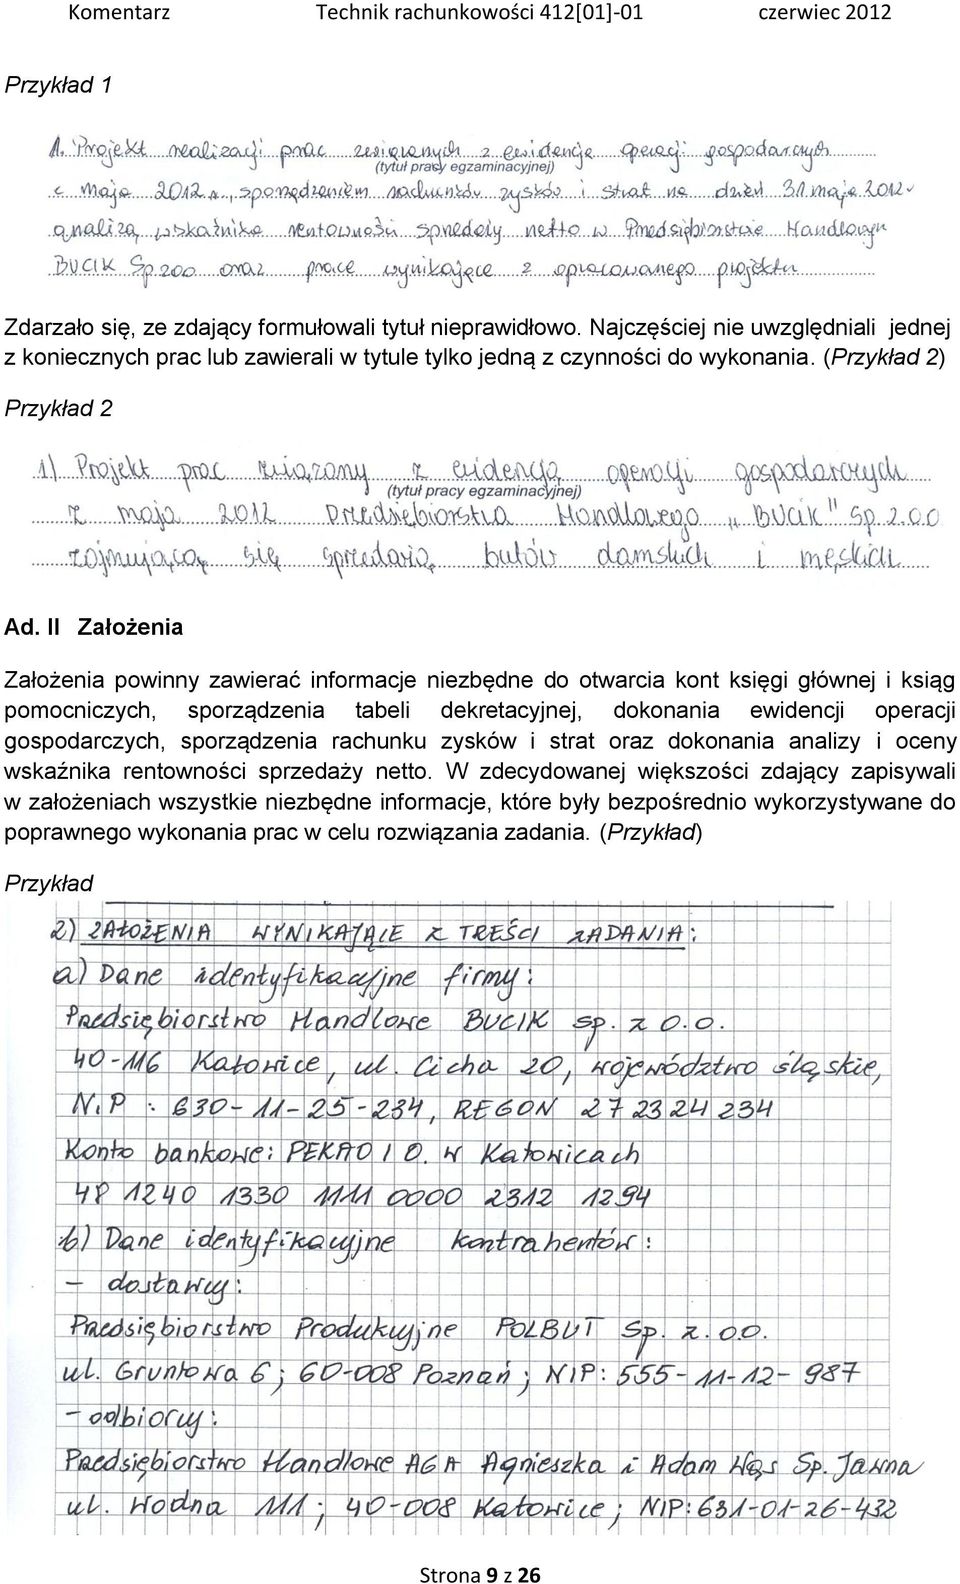 Komentarz Technik rachunkowości 412[01]-01 czerwiec 2012
Przykład 1
1. Projekt realizacji prac związanych z ewidencją operacji gospodarczych
(tytuł pracy egzaminacyjnej)
z maja 2012 r., sporządzeniem rachunków zysków i strat na dzień 31 maja 2012
analizą wskaźnika rentowności sprzedaży netto w Przedsiębiorstwie Handlowym
BUCIK Sp. zoo oraz prace wynikające z opracowanego projektu
Zdarzało się, ze zdający formułowali tytuł nieprawidłowo. Najczęściej nie uwzględniali jednej
z koniecznych prac lub zawierali w tytule tylko jedną z czynności do wykonania. (Przykład 2)
Przykład 2
1) Projekt prac związany z ewidencją operacji gospodarczych
(tytuł pracy egzaminacyjnej)
z maja 2012 Przedsiębiorstwa Handlowego „Bucik" Sp. z.o.o
zajmującą się sprzedażą butów damskich i męskich
Ad. II Założenia
Założenia powinny zawierać informacje niezbędne do otwarcia kont księgi głównej i ksiąg
pomocniczych, sporządzenia tabeli dekretacyjnej, dokonania ewidencji operacji
gospodarczych, sporządzenia rachunku zysków i strat oraz dokonania analizy i oceny
wskaźnika rentowności sprzedaży netto. W zdecydowanej większości zdający zapisywali
w założeniach wszystkie niezbędne informacje, które były bezpośrednio wykorzystywane do
poprawnego wykonania prac w celu rozwiązania zadania. (Przykład)
Przykład
2) ZAŁOŻENIA WYNIKAJĄCE Z TREŚCI ZADANIA:
a) Dane identyfikacyjne firmy:
Przedsiębiorstwo Handlowe BUCIK sp. z o.o.
40-116 Katowice, ul. Cicha 20, województwo śląskie,
N.I.P : 630-11-25-234, REGON 272324234
Konto bankowe: PEKAO I O. w Katowicach
48 1240 1330 1111 0000 2312 1294
b) Dane identyfikacyjne kontrahentów:
- dostawcy:
Przedsiębiorstwo Produkcyjne POLBUT Sp. z. o.o.
ul. Gruntowa 6; 60-008 Poznań; NIP: 555-11-12-987
- odbiorcy:
Przedsiębiorstwo Handlowe AGA Agnieszka i Adam Wąs Sp. Jawna
ul. Wodna 111; 40-008 Katowice; NIP: 631-01-26-432
Strona 9 z 26